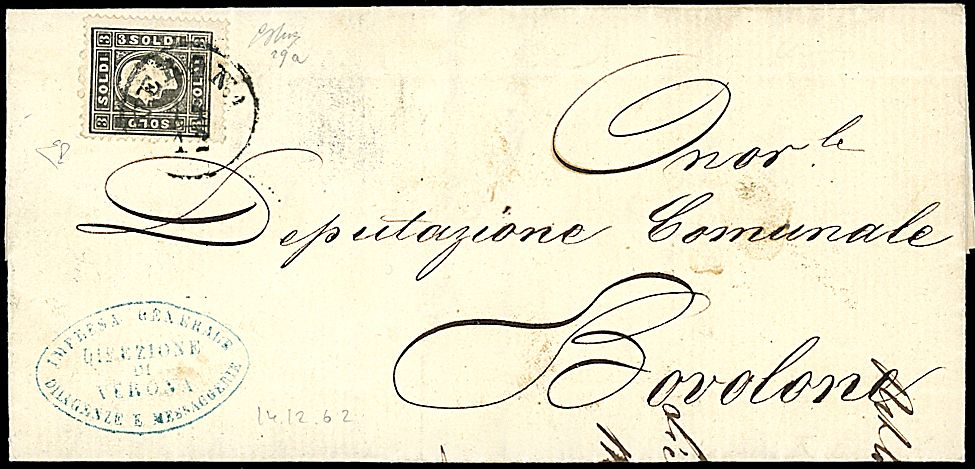 3 SOLDI 3
SOLDI
SOLDI
SOLDI
29a
Onor.le
Deputazione Comunale
Bovolone
IMPRESA GENERALE
DIREZIONE
DI
VERONA
DILIGENZE E MESSAGGERIE
14.12.62